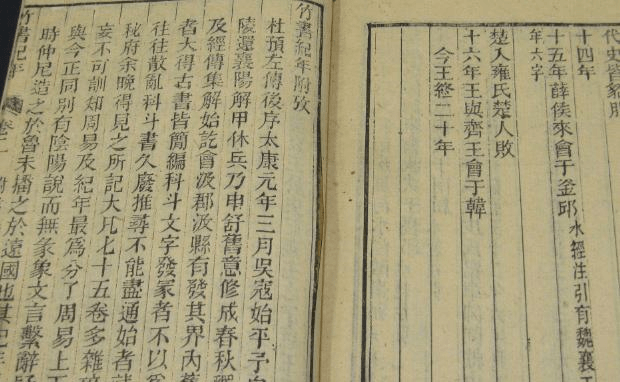 代史皆
十四年
十五年薛侯來會于釜邱水經注引有魏襄王
年六字
楚人雍氏楚人敗
十六年王與齊王會于韓
今王終二十年
竹書紀年附攷
杜預左傳後序太康元年三月吳寇始平予自
陵還襄陽解甲休兵乃申舊意修成春秋
及經傳集解始訖會汲郡汲縣有發其界內舊
者大得古書皆簡編科斗文字發冢者不以爲
往往散亂科斗書久廢推尋不能盡通始者
秘府余晚得見之所記大凡七十五卷多雜碎
妄不可訓知周易及紀年最爲分了周易上下
與今正同別有陰陽說而無彖象文言繫辭疑
時仲尼造之於魯未播之於遠國也其紀年
竹書紀年